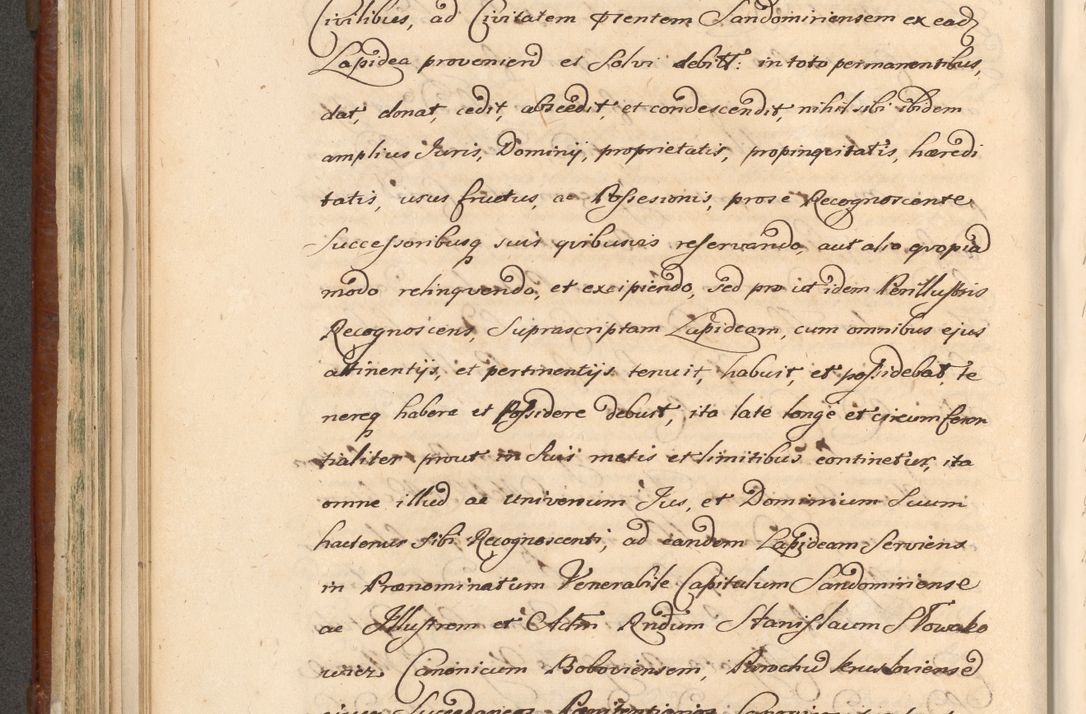 Civilibus, ad Civitatem Psentem Sandomiriensem ex ead
Lapidea proveniend et Solvi debitt: in toto permanentibus,
dat, donat, cedit, abscedit, et condescendit, nihil sibi ibidem
amplius Juris, Dominij, proprietatis, propinquitatis, hæredi
tatis, usus fructus, ac Possesionis, pro se Recognoscente
Successoribusq suis quibusvis reservando, aut alio quopiā
modo relinquendo, et excipiendo, sed pro ut idem Perillustris
Recognoscens, Suprascriptam Lapideam, cum omnibus ejus
attinentijs, et pertinentijs tenuit, habuit, et possidebat, te
nereq habere et Possidere debuit, ita late longe et circumferen
tialiter prout in suis metis et limitibus continetur, ita
omne illud ac universum Jus, et Dominium Suum
hactenus sibi Recognoscenti, ad eandem Lapideam Serviens
in Prænominatum Venerabile Capitulum Sandomiriense
ac Illustrem et Adm Rndum Stanislaum Słowako
wicz Canonicum Boboviensem, Parochū
Succedaneos Pœnitentiarios